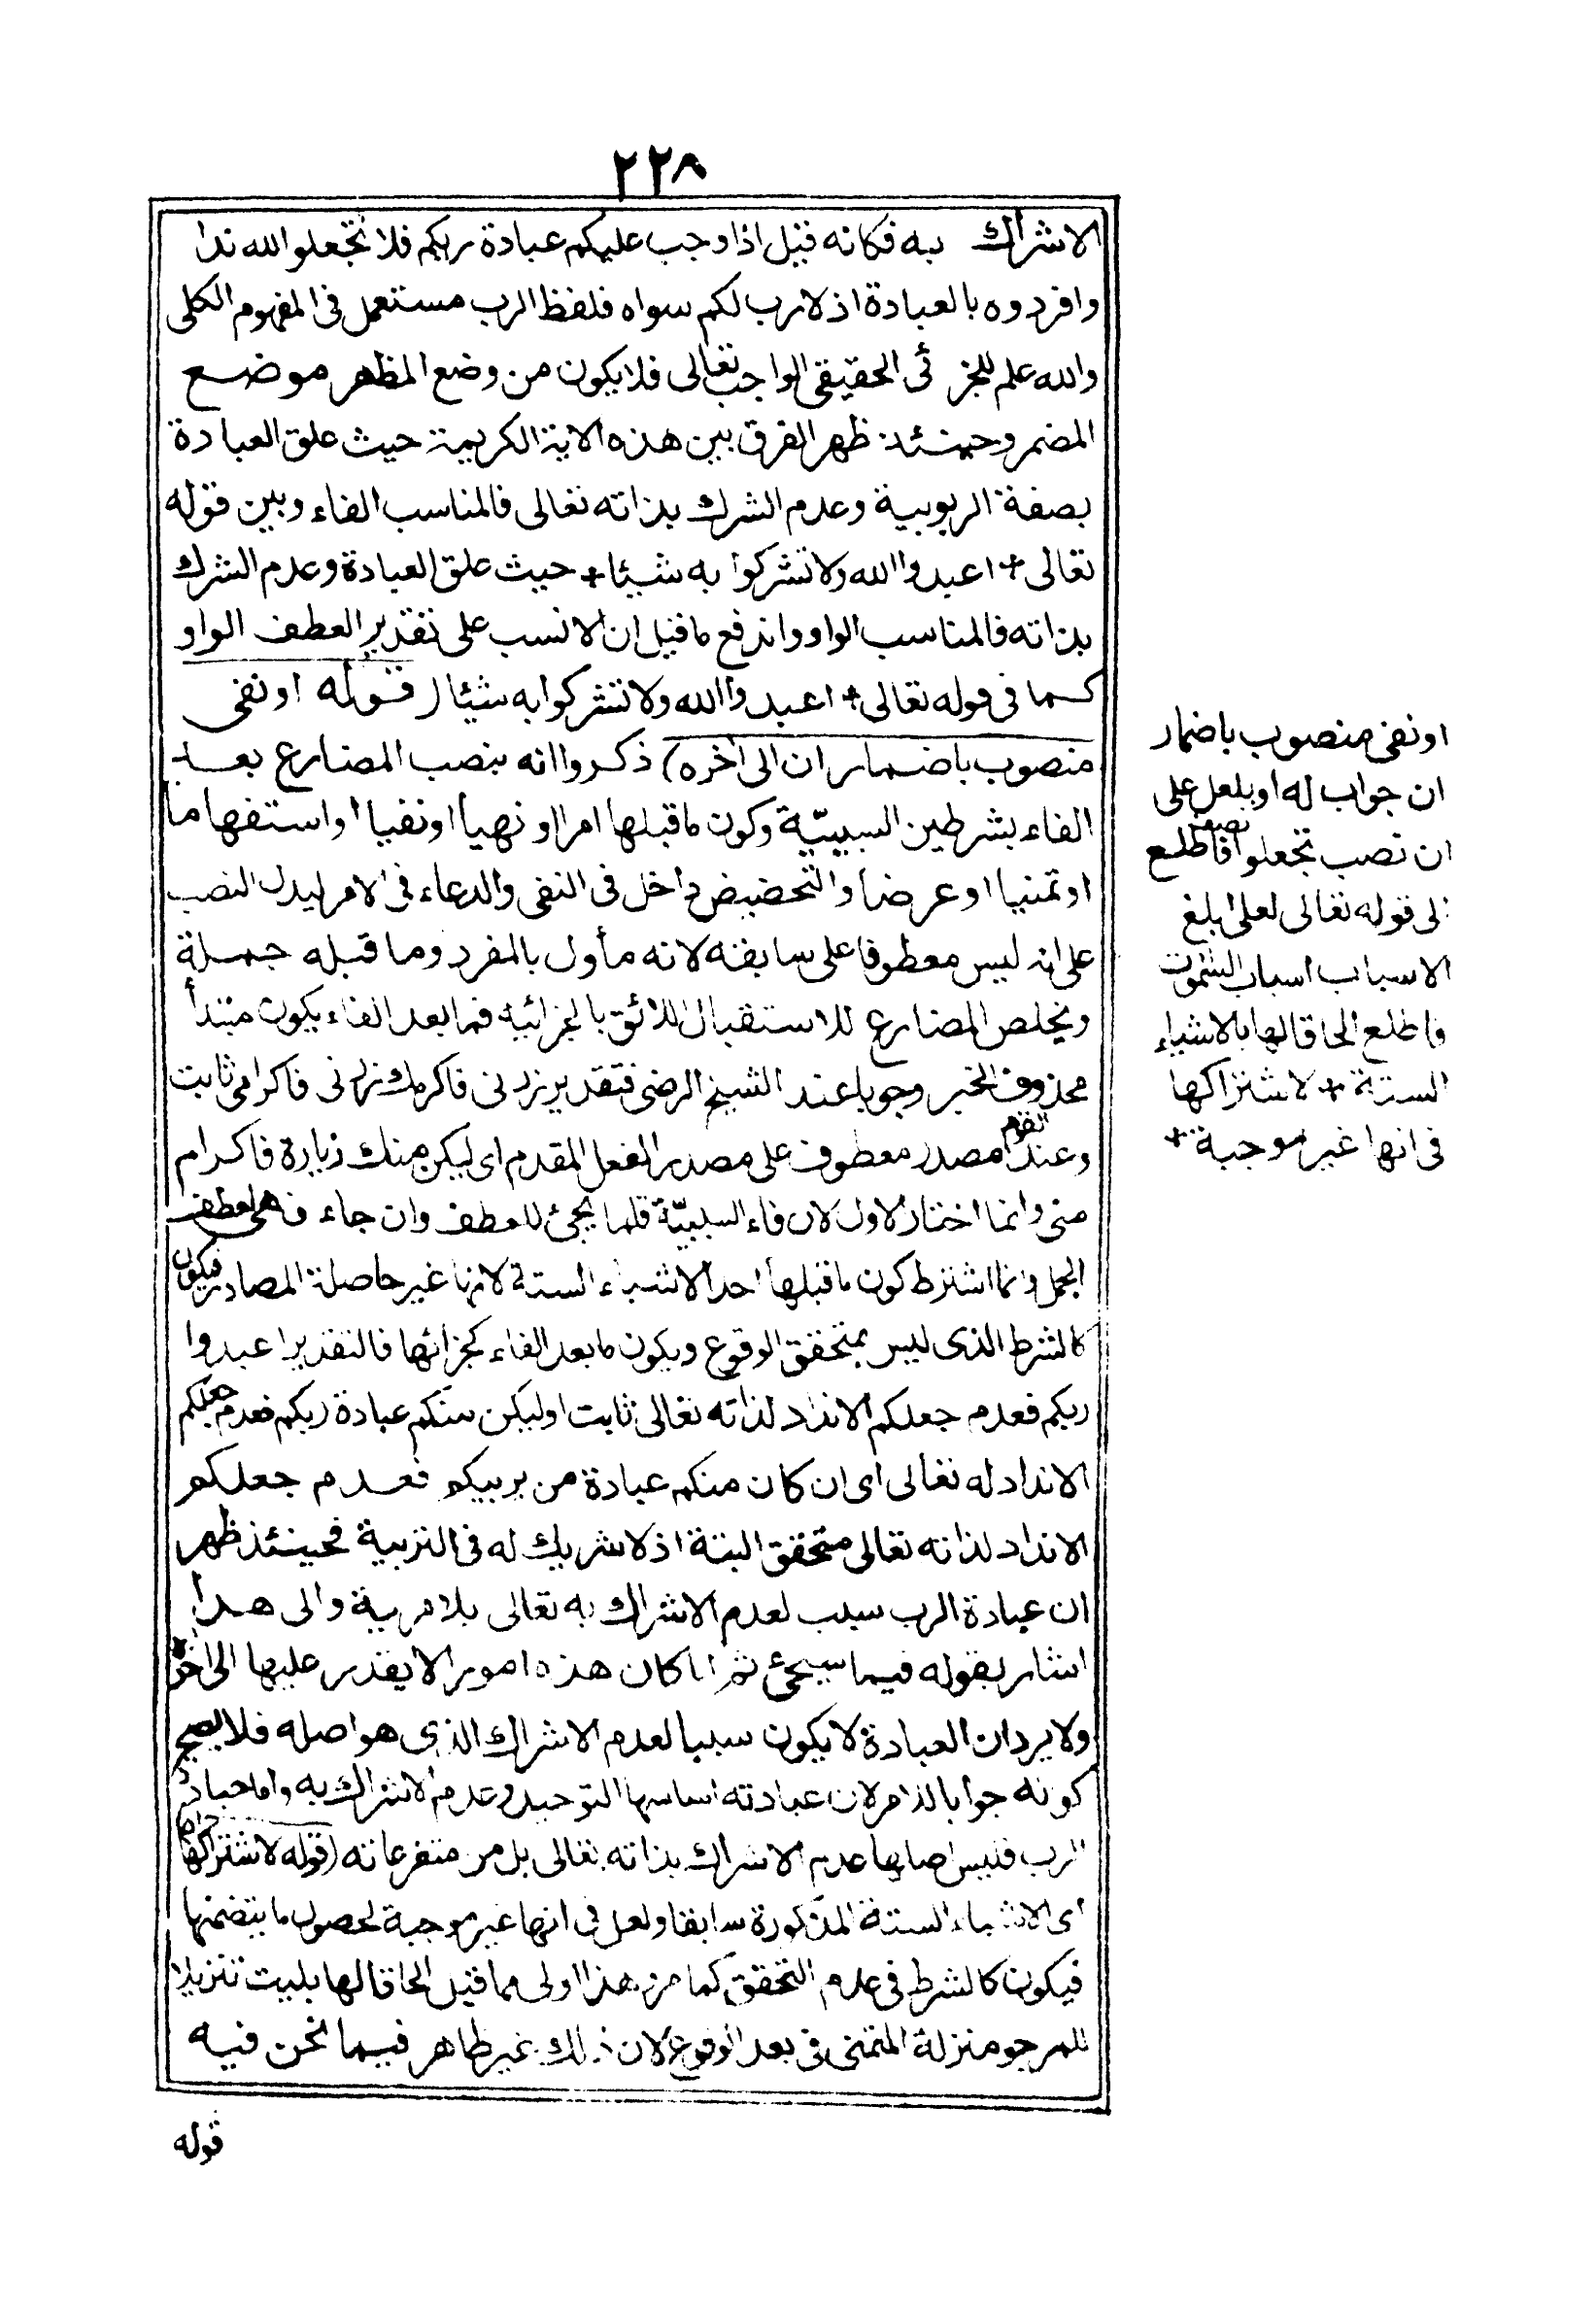 ٢٢٨
الاشراك به فكانه قيل اذا وجب عليكم عبادة ربكم فلا تجعلوا لله ندا
وافردوه بالعبادة اذ لا رب لكم سواه فلفظ الرب مستعمل فى المفهوم الكلى
والله علم للجزئى الحقيقى الواجب تعالى فلا يكون من وضع المظهر موضع
المضمر وحينئذ ظهر الفرق بين هذه الاية الكريمة حيث علق العبادة
بصفة الربوبية وعدم الشرك بذاته تعالى فالمناسب الفاء وبين قوله
تعالى + اعبدوا الله ولا تشركوا به شيئا + حيث علق العبادة وعدم الشرك
بذاته فالمناسب الواو واندفع ما قيل ان الانسب على تقدير العطف الواو
كما فى قوله تعالى + اعبدوا الله ولا تشركوا به شيئا ( قوله او نفى
منصوب باضمار ان الى آخره) ذكروا انه ينصب المضارع بعد
الفاء بشرطين السببيّة وكون ما قبلها امرا او نهيا او نفيا او استفهاما
او تمنيا او عرضا والتحضيض داخل فى النفى والدعاء فى الامر ليدل النصب
على انه ليس معطوفا على سابقه لانه مأول بالمفرد وما قبله جملة
ويخلص المضارع للاستقبال اللائق بالجزائية فما بعد الفاء يكون مبتدأ
محذوف الخبر وجوبا عند الشيخ الرضى فتقدير زرنى فاكرمك زرنى فاكرامى ثابت
وعند القوم مصدر معطوف على مصدر الفعل المقدم اى ليكن منك زيارة فاكرام
منى وانما اختار الاول لان فاء السببيّة قلما يجئ للعطف وان جاء فهى لعطف
الجمل وانما اشترط كون ما قبلها احد الاشياء الستة لانها غير حاصلة المصادر فيكون
كالشرط الذى ليس بمتحقق الوقوع ويكون ما بعد الفاء كجزائها فالتقدير اعبدوا
ربكم فعدم جعلكم الانداد لذاته تعالى ثابت او ليكن منكم عبادة ربكم فعدم جعلكم
الانداد له تعالى اى ان كان منكم عبادة من يربيكم فعدم جعلكم
الانداد لذاته تعالى متحقق البتة اذ لا شريك له فى التربية فحينئذ ظهر
ان عبادة الرب سبب لعدم الاشراك به تعالى بلا مرية والى هذا
اشار بقوله فيما سيجئ ثم لما كان هذه امورا لا يقدر عليها الى آخره
ولا يرد ان العبادة لا يكون سببا لعدم الاشراك الذى هو اصله فلا يصح
كونه جوابا للامر لان عبادته اساسها التوحيد وعدم الاشراك به واما عبادة
الرب فليس اصلها عدم الاشراك بذاته تعالى بل من متفرعاته (قوله لاشتراكها
اى الاشياء الستة المذكورة سابقا ولعل فى انها غير موجبة لحصول ما يتضمنها
فيكون كالشرط فى عدم التحقق كما مر هذا اولى مما قيل الحاقا لها بليت تنزيلا
للمرجو منزلة المتمنى فى بعد الوقوع لان ذلك غير ظاهر فيما نحن فيه
قوله
او نفى منصوب باضمار
ان جواب له او بلعل على
ان نصب تجعلوا نصب فاطلع
الى قوله تعالى لعلى ابلغ
الاسباب اسباب السموات
فاطلع الحاقا لها بالاشياء
الستة + لاشتراكها
فى انها غير موجبة +